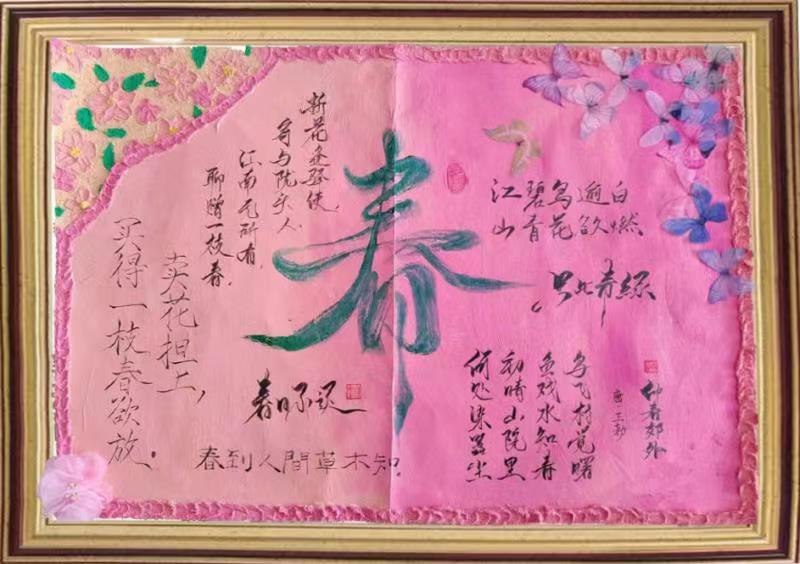 折花逢驿使,
寄与陇头人.
江南无所有,
聊赠一枝春.
卖花担上,
买得一枝春欲放.
春
春到人間草木知
江碧鸟逾白
山青花欲燃
只此青绿
仲春郊外
唐·王勃
鸟飞村觉曙
鱼戏水知春
初晴山院里
何处染嚣尘